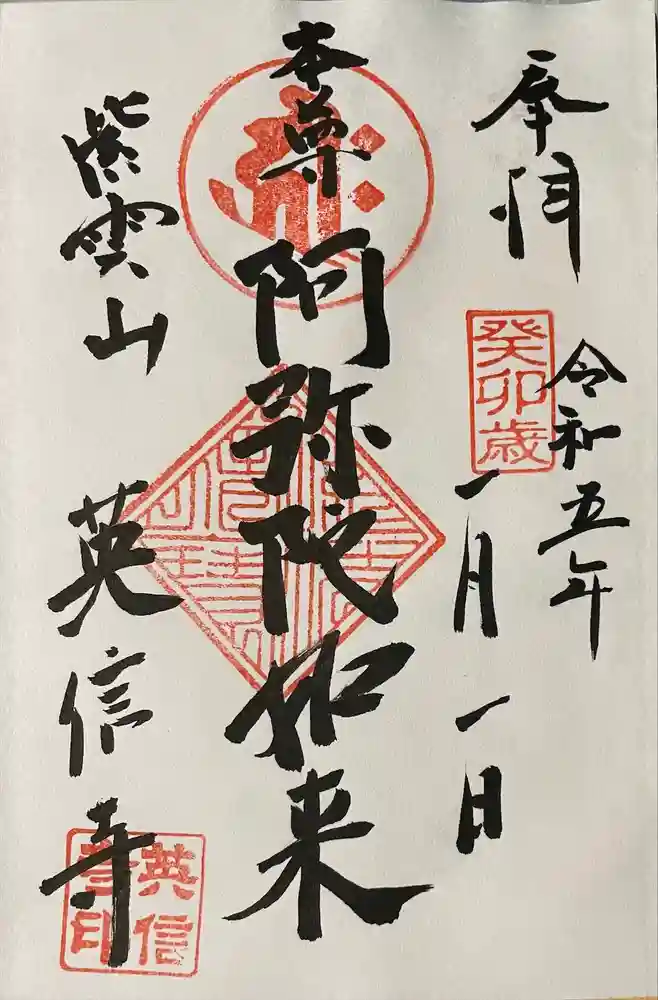 奉拝
令和五年
癸卯歳
一月一日
本尊 阿弥陀如来
紫雲山
英信寺
英信寺印